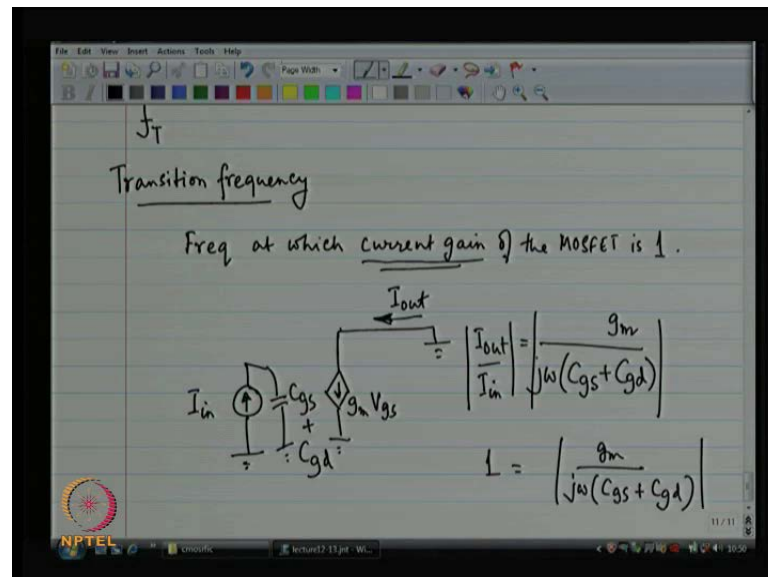 File Edit View Insert Actions Tools Help
Page Width
B I
f_T
Transition frequency
Freq at which current gain of the MOSFET is 1.
I_out
|I_out / I_in| = |g_m / jω(C_gs + C_gd)|
I_in
C_gs + C_gd
g_m V_gs
1 = |g_m / jω(C_gs + C_gd)|
11/11
NPTEL
cmosrfic
lecture12-13.jnt - Wi...
10:50